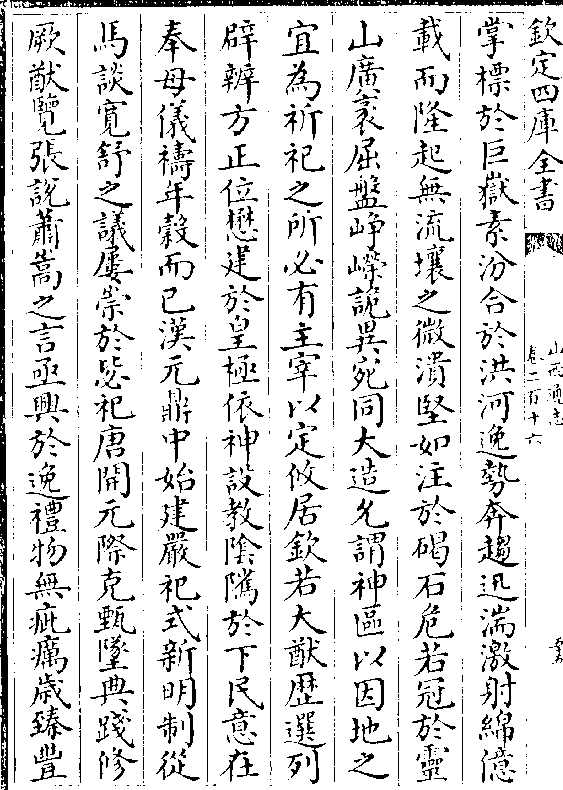 欽定四庫全書
山西通志
卷二百十六
掌標於巨嶽素汾合於洪河逸勢奔趨迅湍激射綿億
載而隆起無流壤之微潰堅如注於碣石危若冠於靈
山廣袤屈盤峥嶸詭異宛同大造允謂神區以因地之
宜為祈祀之所必有主宰以定攸居欽若大猷歴選列
辟辨方正位懋建於皇極依神設教隂隲於下民意在
奉母儀禱年榖而已漢元鼎中始建嚴祀式新明制從
馬談寛舒之議屡崇於毖祀唐開元際克甄墜典踐修
厥猷覽張說蕭嵩之言亟興於逸禮物無疵癘歳臻豐